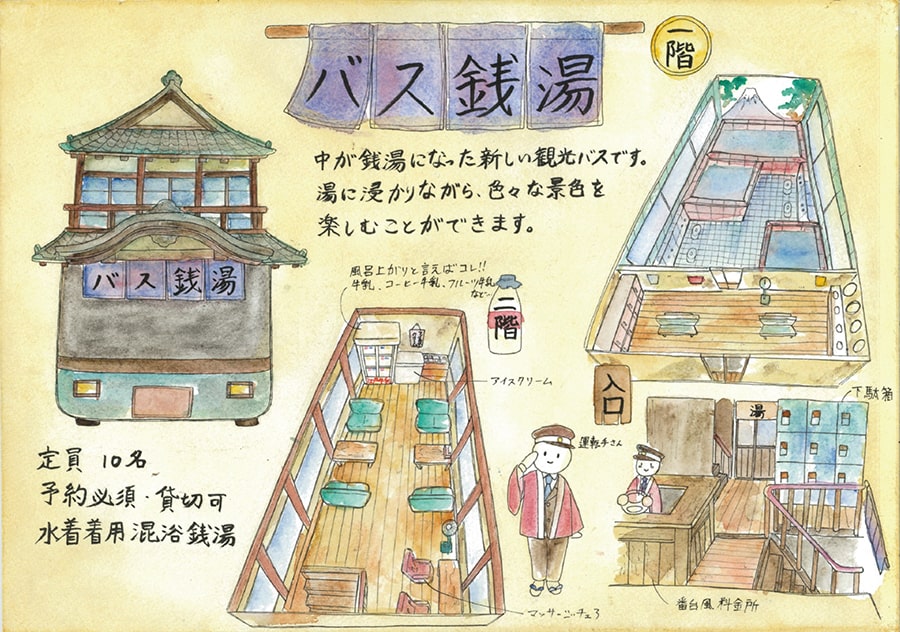 バス銭湯
一階
中が銭湯になった新しい観光バスです。
湯に浸かりながら、色々な景色を
楽しむことができます。
バス銭湯
風呂上がりと言えばコレ!!
牛乳、コーヒー牛乳、フルーツ牛乳
など…
二階
アイスクリーム
入口
下駄箱
湯
運転手さん
定員 10名
予約必須・貸切可
水着着用混浴銭湯
マッサージチェア
番台風料金所